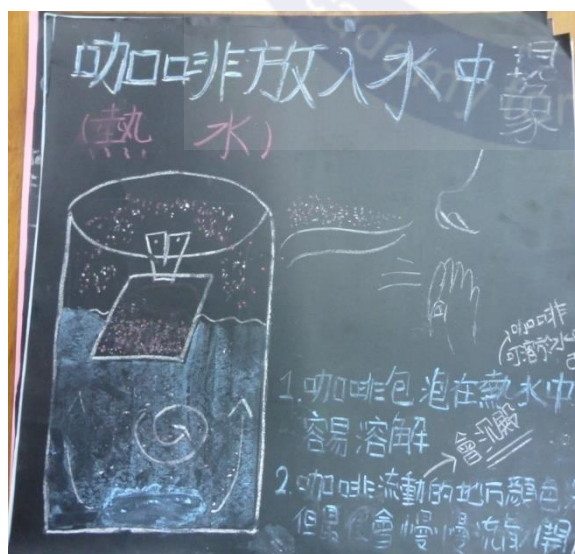 咖啡放入水中現象
(熱 水)
咖啡
可溶於水
1.咖啡包泡在熱水中
容易溶解
會沉澱
2.咖啡流動的地方顏色
但是也會慢慢流散開